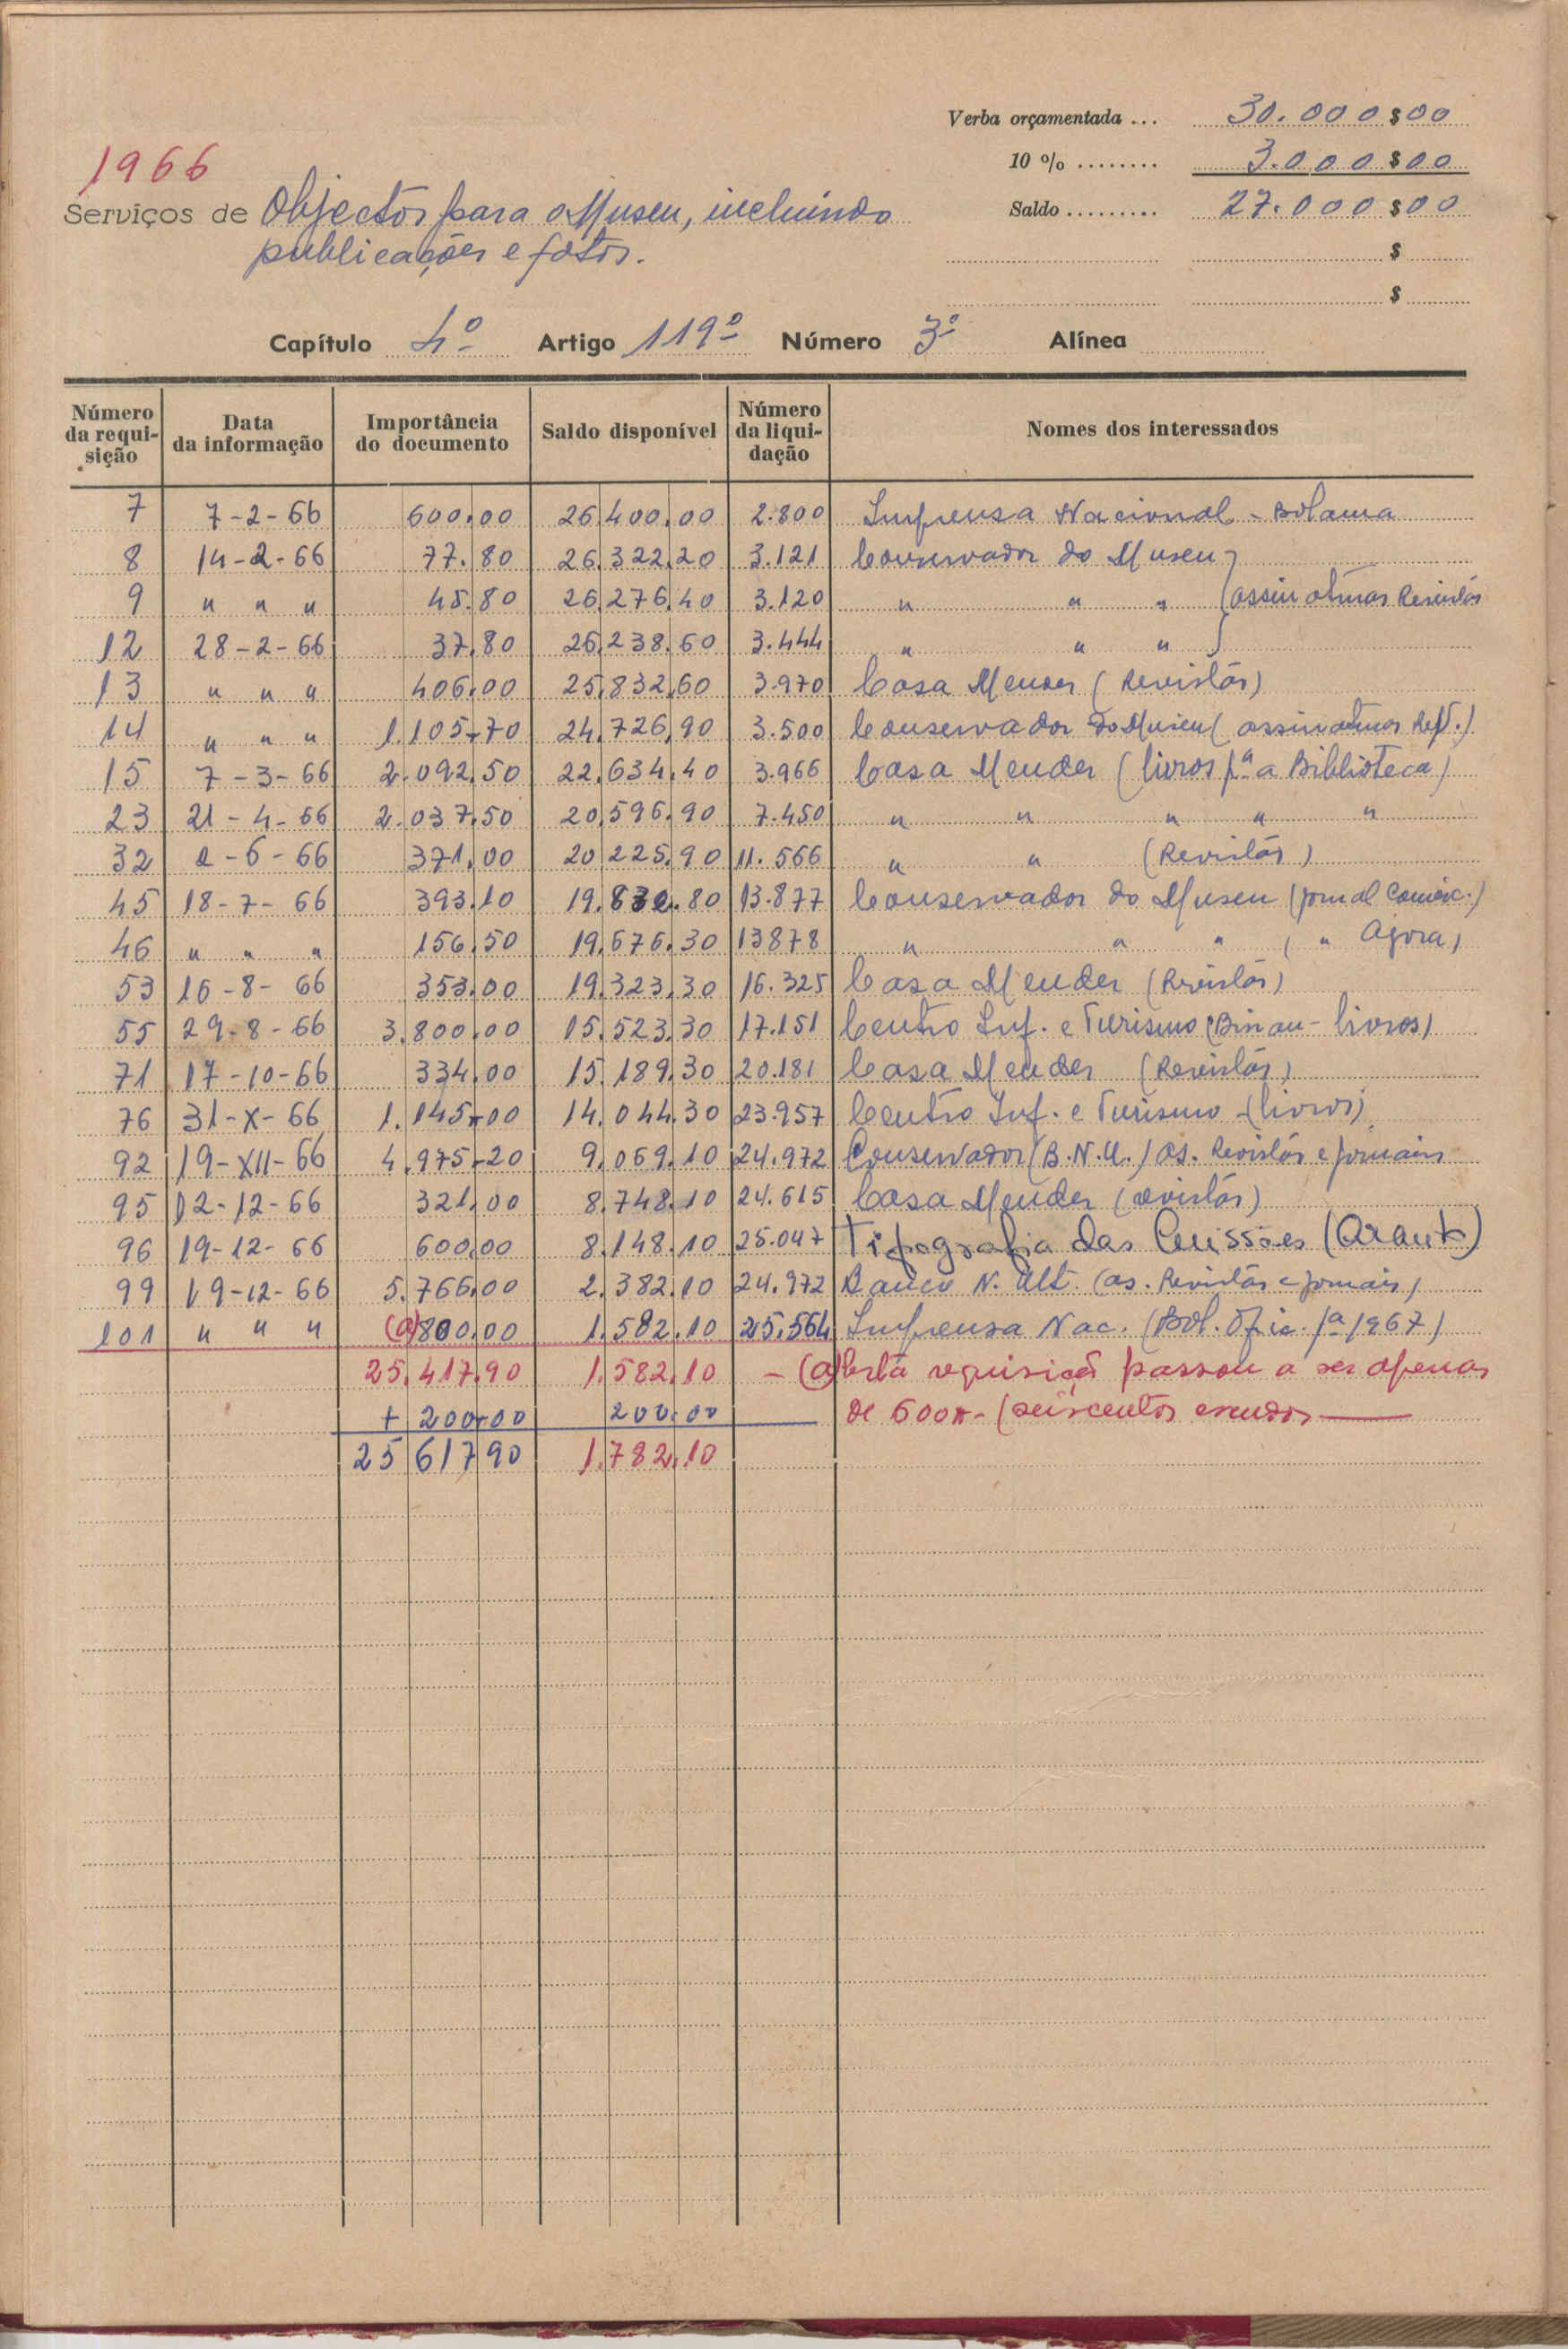 Verba orçamentada ... 30.000$00
10 % ........ 3.000$00
1966
Serviços de Objectos para o Museu, incluindo
Saldo ......... 27.000$00
publicações e fotos.
$
$
Capítulo 4º Artigo 119º Número 3º Alínea
Número da requisição Data da informação Importância do documento Saldo disponível Número da liquidação Nomes dos interessados
7 7-2-66 600,00 26.400,00 2.800 Imprensa Nacional - Bolama
8 14-2-66 77,80 26.322,20 3.121 Conservador do Museu
9 " " " 45.80 26.276,40 3.120 " " " (assinaturas Revistas
12 28-2-66 37,80 26.238,60 3.444 " " "
13 " " " 406,00 25.832,60 3.970 Casa Mendes (Revistas)
14 " " " 1.105,70 24.726,90 3.500 Conservador do Museu (assinaturas Rept.)
15 7-3-66 2.092,50 22.634,40 3.966 Casa Mendes (livros pª a Biblioteca)
23 21-4-66 2.037,50 20.596,90 7.450 " " " " "
32 2-6-66 371,00 20225,90 11.566 " " (Revistas)
45 18-7-66 393,10 19.832.80 13.877 Conservador do Museu (jornal Comérc.)
46 " " " 156,50 19.676,30 13878 " " " ( " Agora)
53 16-8-66 353,00 19.323,30 16.325 Casa Mendes (Revistas)
55 29-8-66 3.800,00 15.523,30 17.151 Centro Inf. e Turismo (Binau - livros)
71 17-10-66 334,00 15.189,30 20.181 Casa Mendes (Revistas)
76 31-X-66 1.145,00 14.044,30 23.957 Centro Inf. e Turismo - (livros)
92 19-XII-66 4.975,20 9.069,10 24.972 Conservador (B.N.U.) as. Revistas e jornais
95 12-12-66 321,00 8.748,10 24.615 Casa Mendes (revistas)
96 19-12-66 600,00 8.148,10 25.047 Tipografia das Missões
99 19-12-66 5.766,00 2.382,10 24.972 Banco N. Ult. (as. Revistas e jornais)
101 " " " (a) 800,00 1.582,10 25.564 Imprensa Nac. (Bol. Ofic. pª 1967)
25.417,90 1.582,10 - (a) Esta requisição passou a ser apenas
+ 200,00 200,00 de 600$- (seiscentos escudos
25 617 90 1.782,10